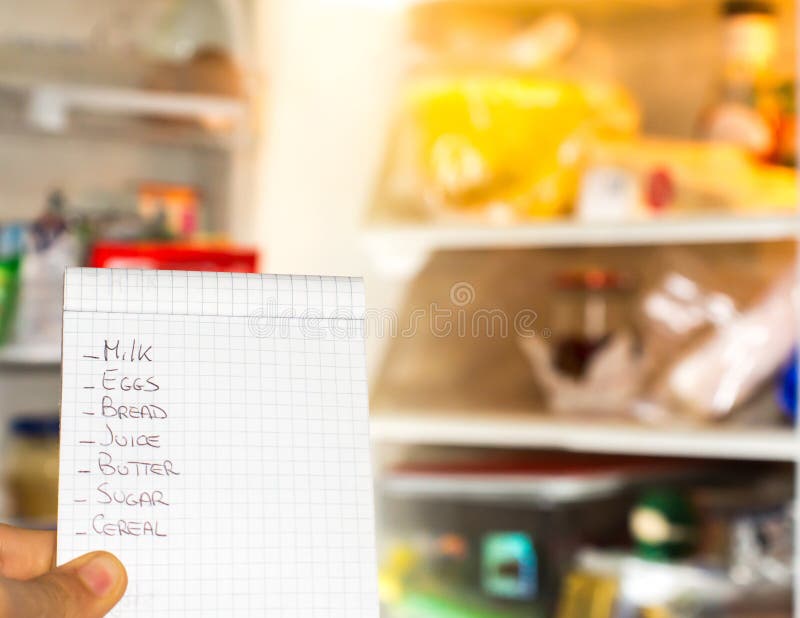 - Milk
- Eggs
- Bread
- Juice
- Butter
- Sugar
- Cereal
dreamstime